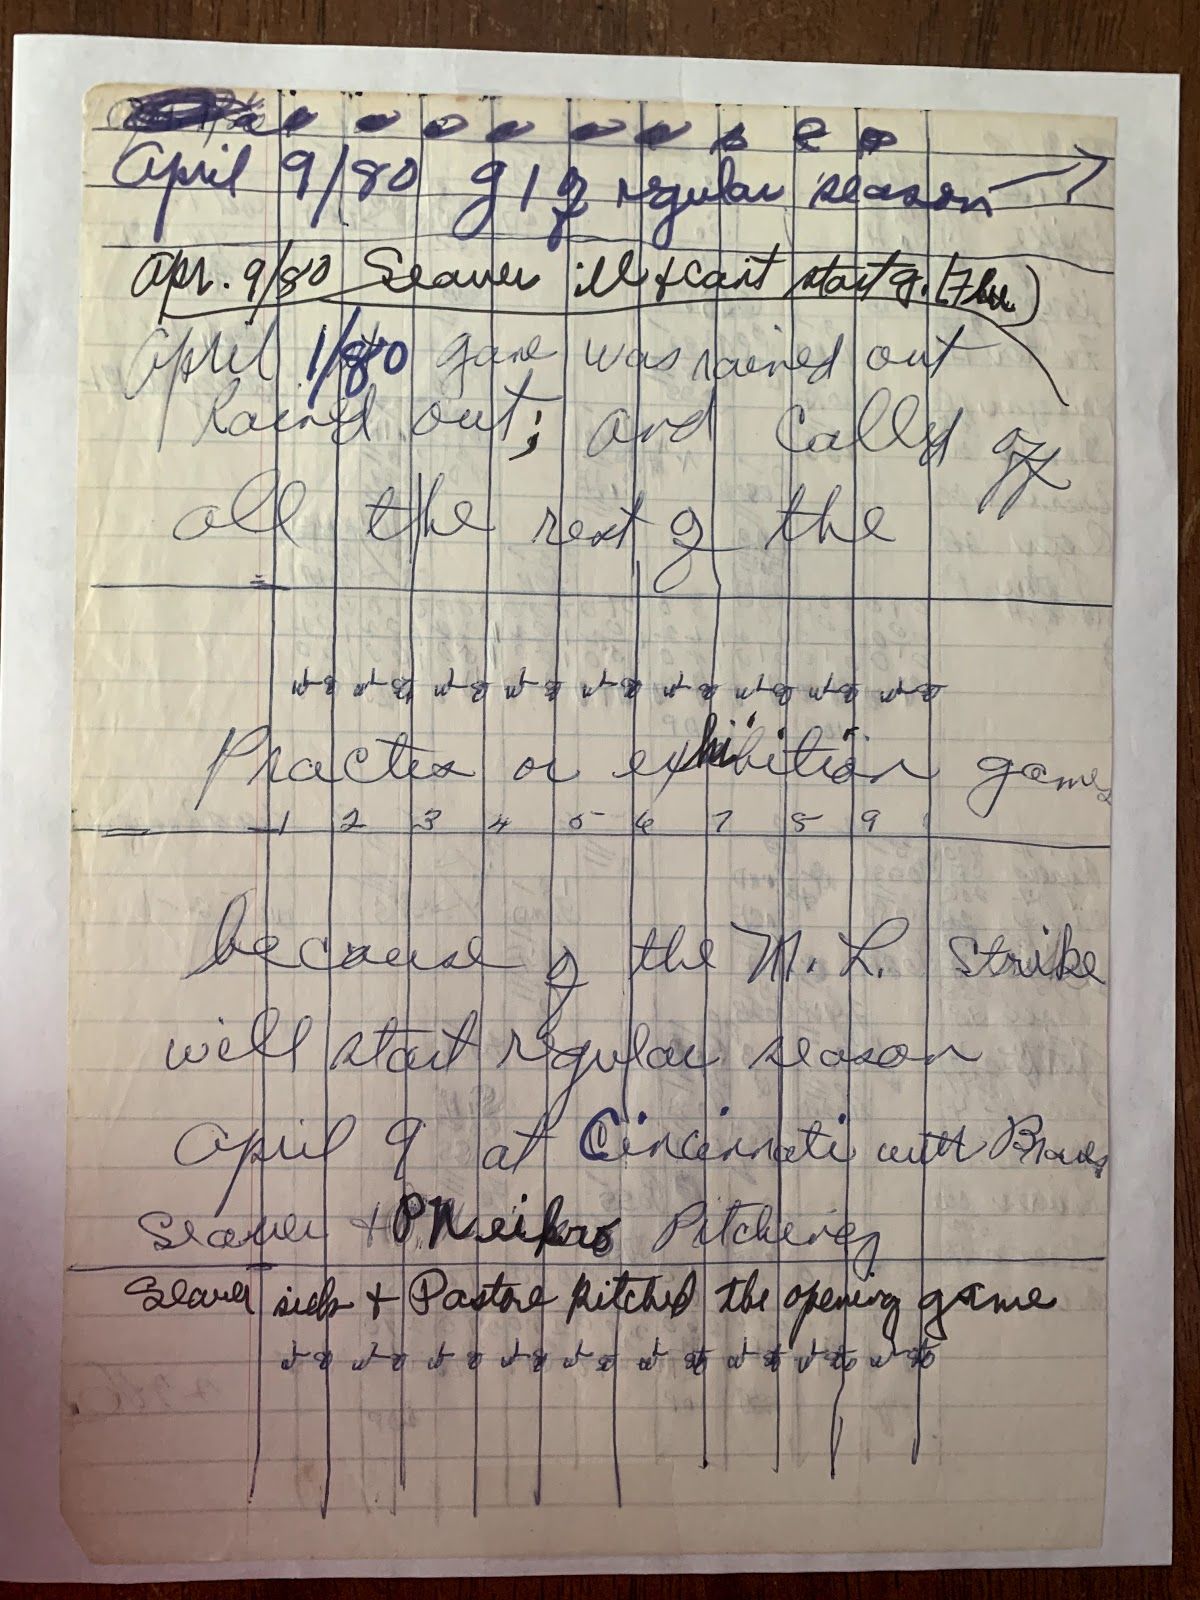 April 9/80 g 1 of regular season →
Apr. 9/80 Seaver ill + can't start g. (Flu)
April 1/80 game was rained out
Rained out; and called off
all the rest of the
Practes or exhibition games
1 2 3 4 5 6 7 8 9
because of the M. L. Strike
will start regular season
April 9 at Cincinnati with Braves
Seaver + P Neikro Pitching
Seaver sick + Pastore pitched the opening game